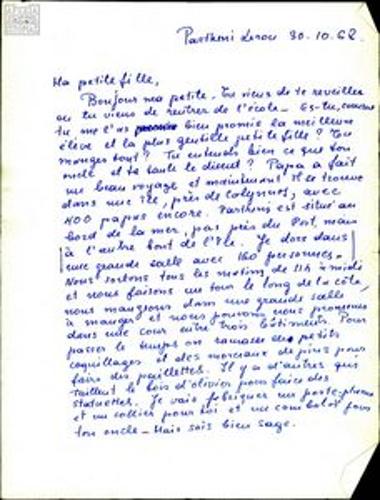 Parthéni Leros 30.10.68.
Ma petite fille,
Bonjour ma petite. Tu viens de te reveiller
ou tu viens de rentrer de l'école. Es-tu, comme
tu me l'as bien promis la meilleure
élève et la plus gentille petite fille? Tu
manges tout? Tu entends bien ce que ton
oncle et ta tante te disent? Papa a fait
un beau voyage et maintenant il se trouve
dans une île, près de Calymnos, avec
400 papas encore. Parthéni est situé au
bord de la mer, pas près du Port, mais
à l'autre bout de l'île. Je dors dans
une grande salle avec 160 personnes.
Nous sortons tous les matins de 11h à midi
et nous faisons un tour le long de la côte,
nous mangeons dans une grande salle
à manger et nous pouvons nous promener
dans une cour entre trois bâtiments. Pour
passer le temps on ramasse des petits
coquillages et des morceaux de pins pour
faire des paillettes. Il y a d'autres qui
taillent le bois d'olivier pour faire des
statuettes. Je vais fabriquer un porte-plume
et un collier pour toi et un comboloï pour
ton oncle. Mais sois bien sage.